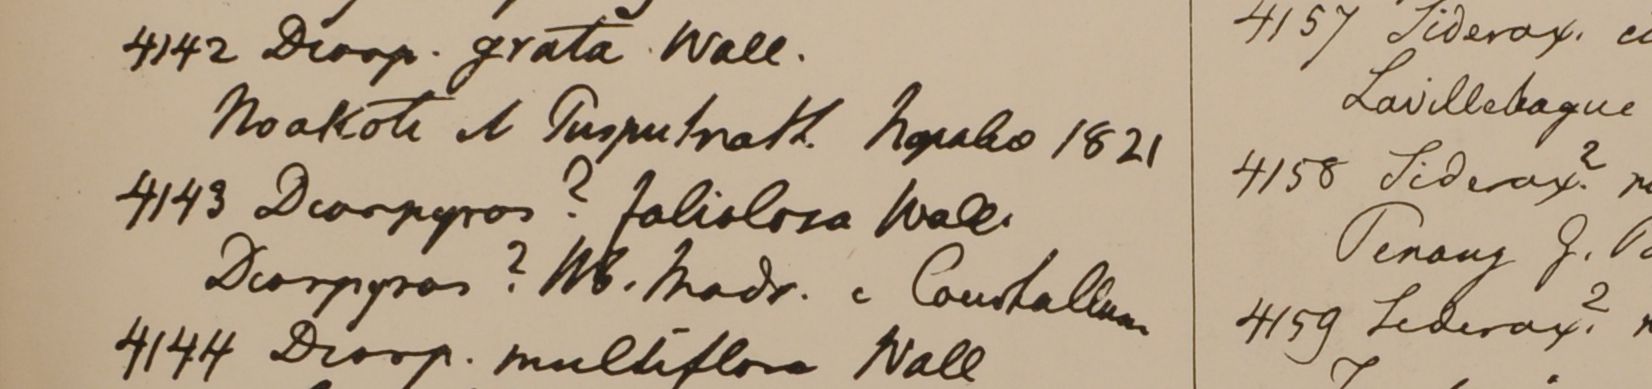 4142 Diosp. grata Wall.
Noakote et Pusputnath. Napalio 1821
4143 Diospyros? foliolosa Wall.
Diospyros? Hb. Madr. e Courtallum
4144 Diosp. multiflora Wall
4157 Siderox.
Lavillebague
4158 Siderox?
Penang G.
4159 Siderox?